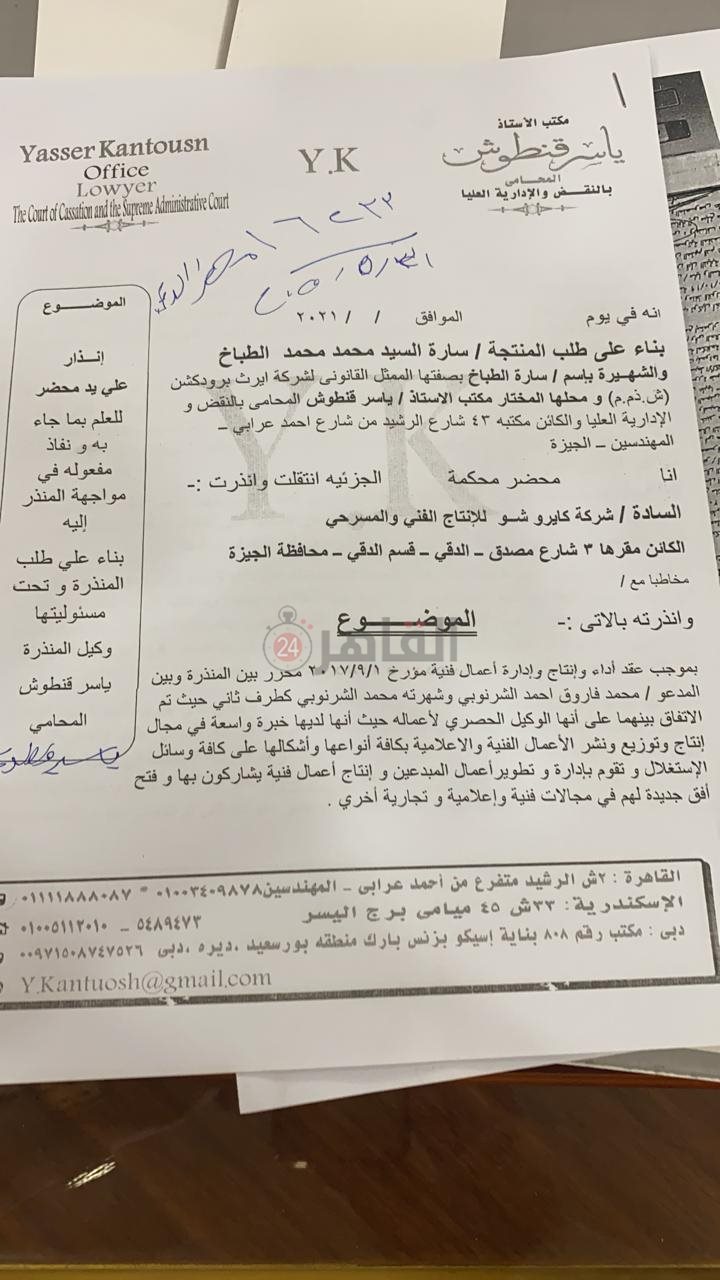 Yasser Kantousn
Office
Lowyer
The Court of Cassation and the Supreme Administrative Court
Y.K
مكتب الأستاذ
ياسر قنطوش
المحامى
بالنقض والإدارية العليا
انه في يوم الموافق / / ٢٠٢١
بناء على طلب المنتجة / سارة السيد محمد محمد الطباخ
والشهيرة بإسم / سارة الطباخ بصفتها الممثل القانونى لشركة ايرث برودكشن
(ش.ذم.م) و محلها المختار مكتب الاستاذ / ياسر قنطوش المحامى بالنقض و
الإدارية العليا والكائن مكتبه ٤٣ شارع الرشيد من شارع احمد عرابي –
المهندسين – الجيزة
انا محضر محكمة الجزئيه انتقلت وانذرت :-
السادة / شركة كايرو شو للإنتاج الفني والمسرحي
الكائن مقرها ٣ شارع مصدق – الدقي – قسم الدقي – محافظة الجيزة
مخاطبا مع /
وانذرته بالاتى :-
الموضـــــوع
القاهرة 24
بموجب عقد أداء وإنتاج وإدارة أعمال فنية مؤرخ ٢٠١٧/٩/١ محرر بين المنذرة وبين
المدعو / محمد فاروق احمد الشرنوبي وشهرته محمد الشرنوبي كطرف ثاني حيث تم
الاتفاق بينهما على أنها الوكيل الحصري لأعماله حيث أنها لديها خبرة واسعة في مجال
إنتاج وتوزيع ونشر الأعمال الفنية والاعلامية بكافة أنواعها وأشكالها على كافة وسائل
الإستغلال و تقوم بإدارة و تطويرأعمال المبدعين و إنتاج أعمال فنية يشاركون بها و فتح
أفق جديدة لهم في مجالات فنية وإعلامية و تجارية أخري .
الموضـــــوع
إنـــذار
علي يد محضر
للعلم بما جاء
به و نفاذ
مفعوله في
مواجهة المنذر
إليه
بناء علي طلب
المنذرة و تحت
مسئوليتها
وكيل المنذرة
ياسر قنطوش
المحامي
القاهرة : ٢ش الرشيد متفرع من أحمد عرابى – المهندسين ٠١٠٠٣٤٠٩٨٧٨ * ٠١١١١٨٨٨٠٨٧
الإسكندرية: ٣٣ش ٤٥ ميامى برج اليسر ٥٤٨٩٤٧٣ – ٠١٠٠٥١١٢٠١٠
دبى : مكتب رقم ٨٠٨ بناية إسيكو بزنس بارك منطقه بورسعيد ،ديره ،دبى ٠٠٩٧١٥٠٨٧٤٧٥٢٦
Y.Kantuosh@gmail.com